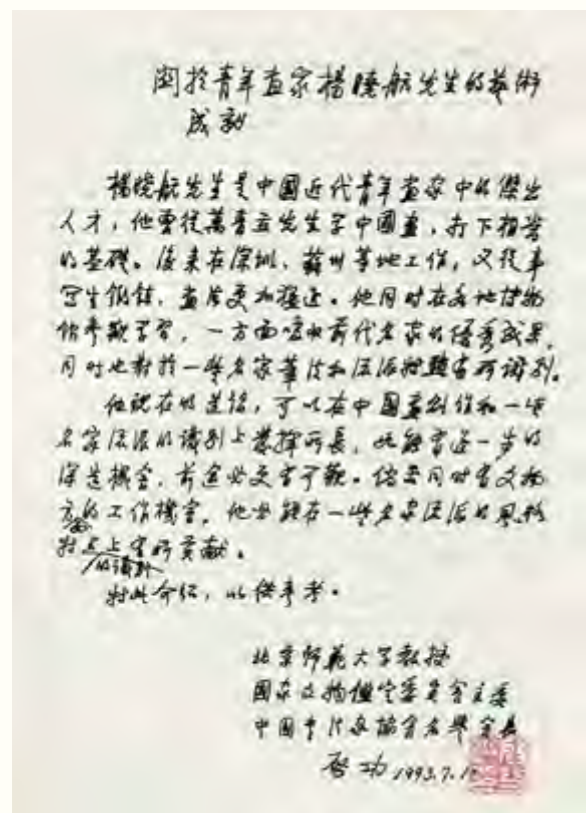 關於青年畫家楊曉航先生的藝術
成就
楊曉航先生是中國近代青年畫家中的傑出
人才，他曾從萬青立先生學中國畫，打下相當
的基礎。後來在深圳、蘇州等地工作，又從事
寫生，畫
更加。他同時在各地博物
館參觀學習，一方面吸收前代名家的優秀成果，
同时也對於一些名家筆法和流派
有所識別。
他現在的造詣，可以在中國畫創作和一些
名家流派的識別上發揮所長，如能有進一步的
深造機會，前途必更有可觀。倘若同时有文物
方面的工作機會，他必能在一些名家流派的風格
特点上的識別有所貢献。
特此介紹，以供參考。
北京師範大學教授
國家文物鑑定委員會主委
中国書法家協會名譽會長
啓功 1993.7.1